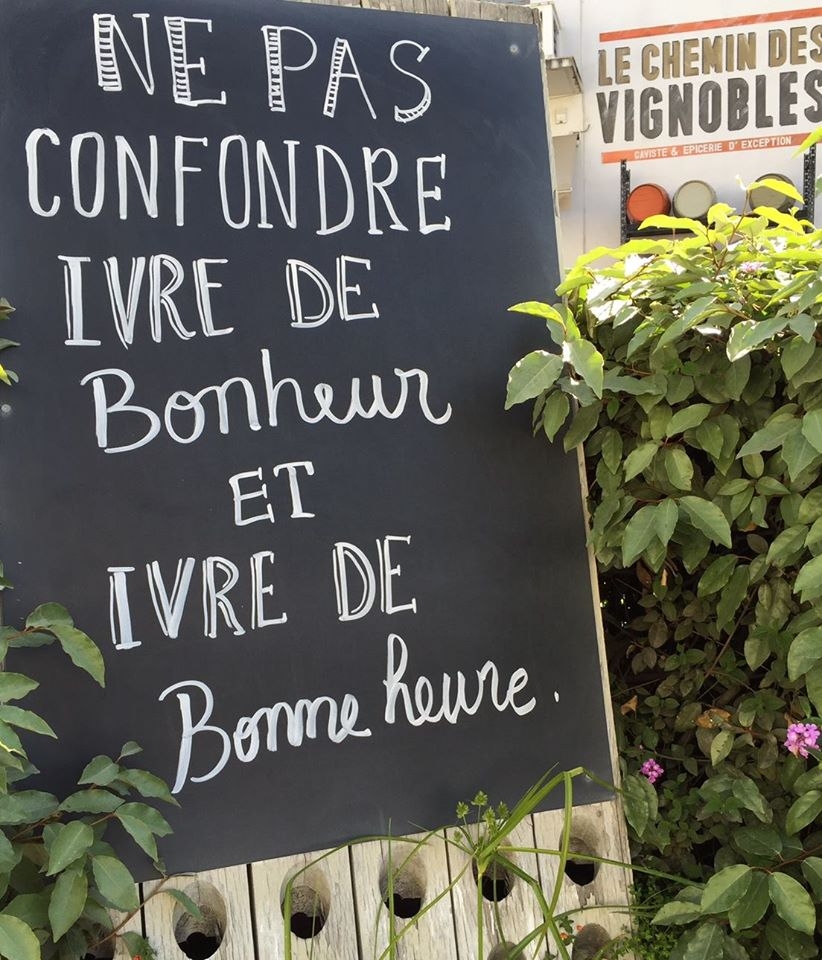 NE PAS
CONFONDRE
IVRE DE
Bonheur
ET
IVRE DE
Bonne heure.
LE CHEMIN DES
VIGNOBLES
CAVISTE & EPICERIE D'EXCEPTION